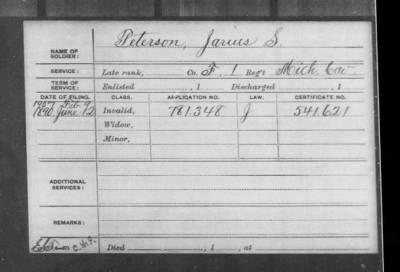 NAME OF SOLDIER: Peterson, Jarius S.
SERVICE: Late rank, Co. F, 1 Reg't Mich. Cav.
TERM OF SERVICE: Enlisted , 1 Discharged , 1
DATE OF FILING. CLASS. APPLICATION NO. LAW. CERTIFICATE NO.
1907 Feb. 9
1890 June 12 Invalid, 781.348 J 541.621
Widow,
Minor,
ADDITIONAL SERVICES:
REMARKS:
Died , 1 , at